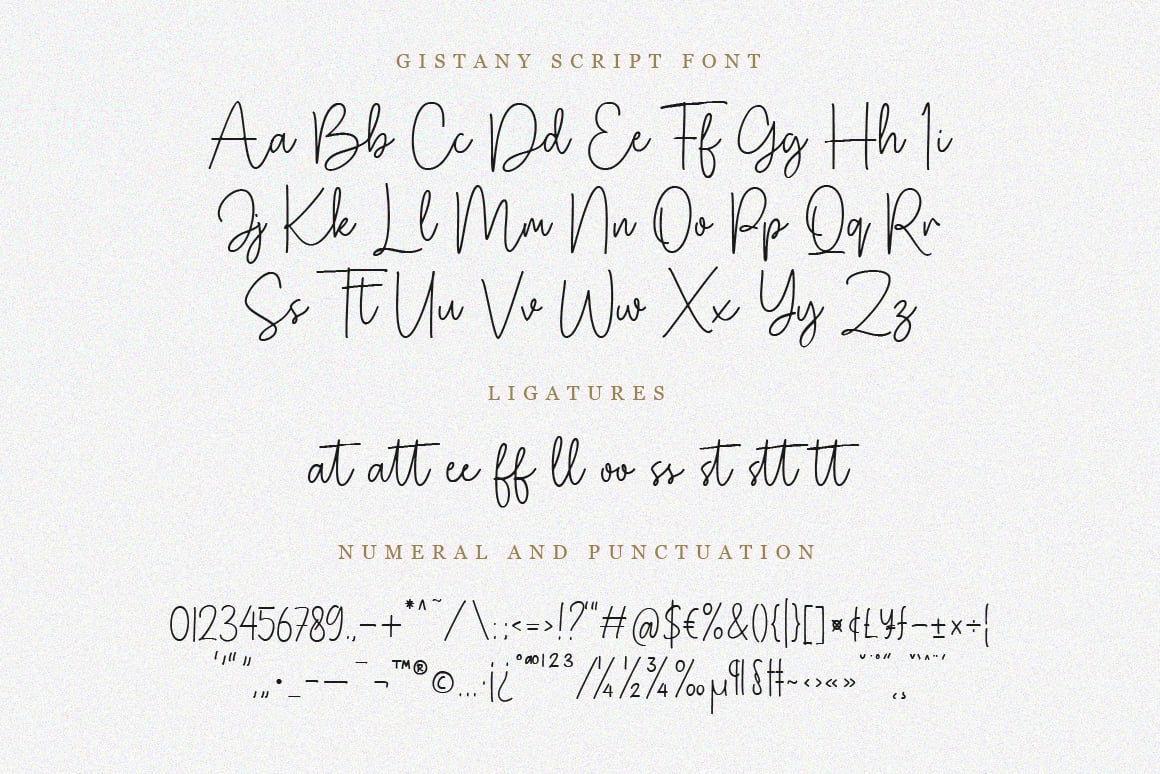 GISTANY SCRIPT FONT
Aa Bb Cc Dd Ee Ff Gg Hh Ii
Jj Kk Ll Mm Nn Oo Pp Qq Rr
Ss Tt Uu Vv Ww Xx Yy Zz
LIGATURES
at att ee ff ll oo ss st stt tt
NUMERAL AND PUNCTUATION
0123456789.,-+*^~/\:;<=>!?'"#@$€%&(){|}[]¤¢£¥ƒ−±×÷¦
‘’“”‚„•_–—¯¬™®©…·¡¿ºª0123⁄¼½¾‰µ¶§‡~‹›«»